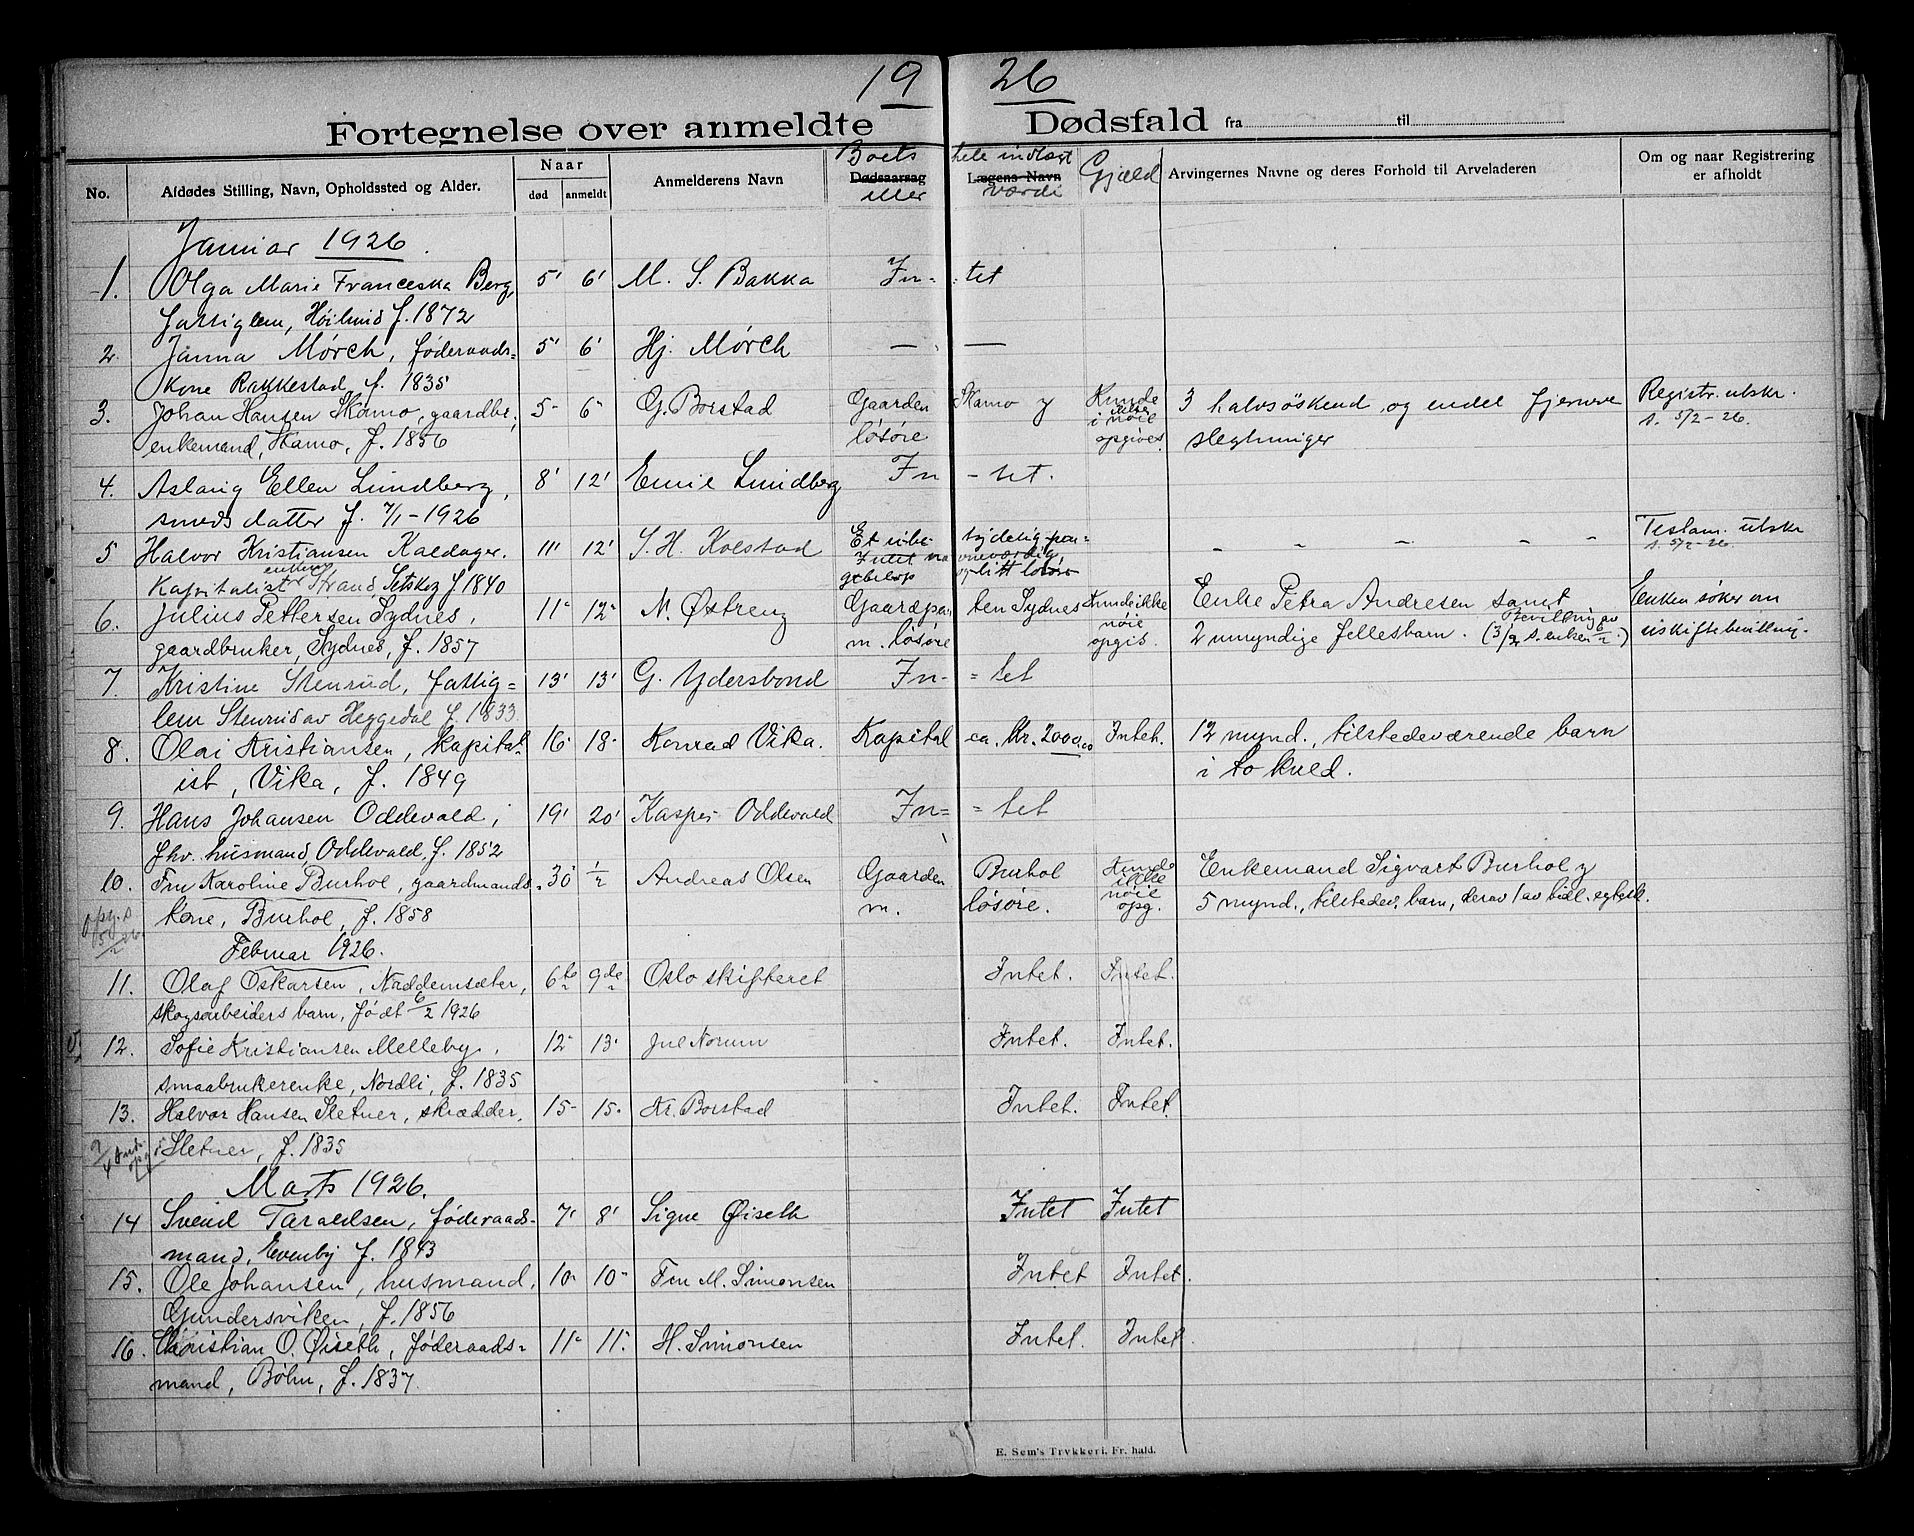 19 26
Fortegnelse over anmeldte Dødsfald fra til
No. Afdødes Stilling, Navn, Opholdssted og Alder. Naar død anmeldt Anmelderens Navn Boets hele indtægt Dødsaarsag eller Lægens Navn værdi Gjæld Arvingernes Navne og deres Forhold til Arveladeren Om og naar Registrering er afholdt
Januar 1926.
1. Olga Marie Franceska Berg, 5' 6' M. S. Bakka In- -tet
fattiglem, f. 1872
2. Janna Mørch, føderaads- 5' 6' Hj. Mørch — —
kone Rakkestad, f. 1835
3. Johan Hansen Kamo, gaardbr., 5- 6- G. Borstad Gaarden Kamo Kunde 3 halvsøskend og endel fjernere Registr. utskr.
enkemand, Kamo, f. 1856 løsøre ikke i nøie opgives. slegtninger s. 5/2-26.
4. Aslaug Ellen Lundberg, 8' 12' Emil Lundberg In -tet.
smeds datter f. 7/1-1926
5 Halvor Kristiansen Kaldager. 11' 12' S. H. Kolstad Et ube- tydelig - - - - Testam. utskr
Kapitalist Strand, Setskog f 1840 og litt løsøre s. 5/2-26.
6. Julius Pettersen Sydnes, 11- 12- N. Østreng Gaardpar ten Sydnes Kunde ikke Enke Petra Andresen samt Enken søker om
gaardbruker, Sydnes, f. 1857 m. løsøre nøie opgis. 2 umyndige fellesbarn. uskiftebevilling.
7. Kristine Stenrud, fattig= 13' 13' G. Ydersbond In- =tet
lem Stenrud av Heggedal f. 1833.
8. Olai Kristiansen, kapital- 16- 18- Konrad Vika. Kapital ca. Kr. 2000,00 Intet. 12 mynd., tilstedeværende barn
ist, Vika, f. 1849 i to kuld.
9. Hans Johansen Oddevald, 19' 20' Kasper Oddevald In= =tet
fhv. husmand, Oddevald, f. 1852
10. Fru Karoline Burhol, gaardmands- 30' 1/2 Andreas Olsen Gaarden Burhol Kunde ikke Enkemand Sigvart Burhol
kone, Burhol, f. 1858 m. løsøre. nøie opg. 5 mynd., tilstedev. barn, derav 1 av
Februar 1926.
11. Olaf Oskarsen, Naddemsæter, 6te 9de Oslo skifteret Intet. Intet.
skogsarbeiders barn, født 6/2 1926
12. Sofie Kristiansen Melleby, 12- 13' Jul Norum Intet. Intet.
smaabrukerenke, Nordli, f. 1835
13. Halvor Hansen Sletner, skrædder, 15- 15- Kr. Borstad Intet. Intet.
Sletner, f. 1835
Marts 1926.
14 Svend Taraldsen, føderaads- 7' 8' Signe Øiseth Intet Intet
mand, Evenby f. 1843
15. Ole Johansen, husmand, 10- 10- Fru M. Simonsen Intet Intet.
Gundersviken, f. 1856
16. Christian O. Øiseth, føderaads= 11- 11- H. Simonsen Intet. Intet.
mand, Bøhn, f. 1837.
E. Sem's Trykkeri, Fr. hald.